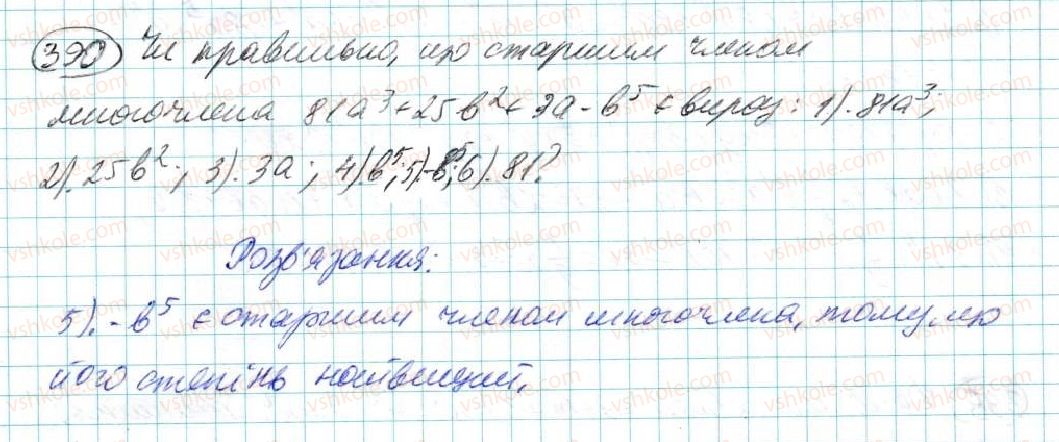 390 Чи правильно, що старшим членом
многочлена 81a³+25b²+3a-b⁵ є вираз: 1). 81a³;
2). 25b²; 3). 3a; 4). b⁵; 5). -b⁵; 6). 81?
Розв'язання:
5). -b⁵ є старшим членом многочлена, тому що
його степінь найвищий.